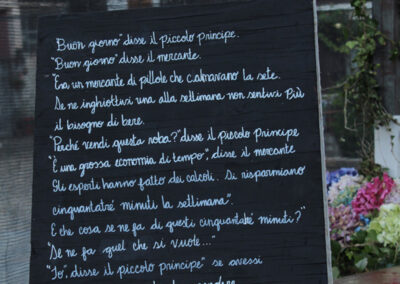 "Buon giorno" disse il piccolo principe.
"Buon giorno" disse il mercante.
"Era un mercante di pillole che calmavano la sete.
Se ne inghiottivi una alla settimana non sentivi più
il bisogno di bere.
"Perché vendi questa roba?" disse il piccolo Principe
"È una grossa economia di tempo", disse il mercante
Gli esperti hanno fatto dei calcoli. Si risparmiano
cinquantatré minuti la settimana".
E che cosa se ne fa di questi cinquantatré minuti?"
"Se ne fa quel che si vuole..."
"Io", disse il piccolo principe" se avessi